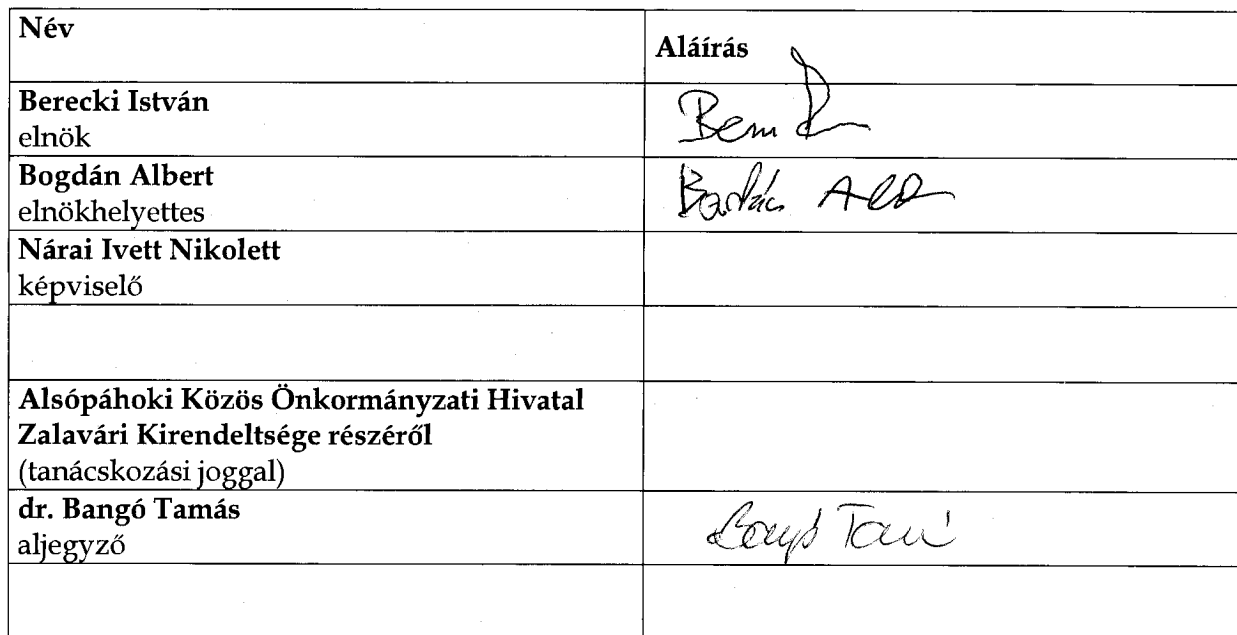 Név
Aláírás
Berecki István
elnök
Bogdán Albert
elnökhelyettes
Nárai Ivett Nikolett
képviselő
Alsópáhoki Közös Önkormányzati Hivatal
Zalavári Kirendeltsége részéről
(tanácskozási joggal)
dr. Bangó Tamás
aljegyző